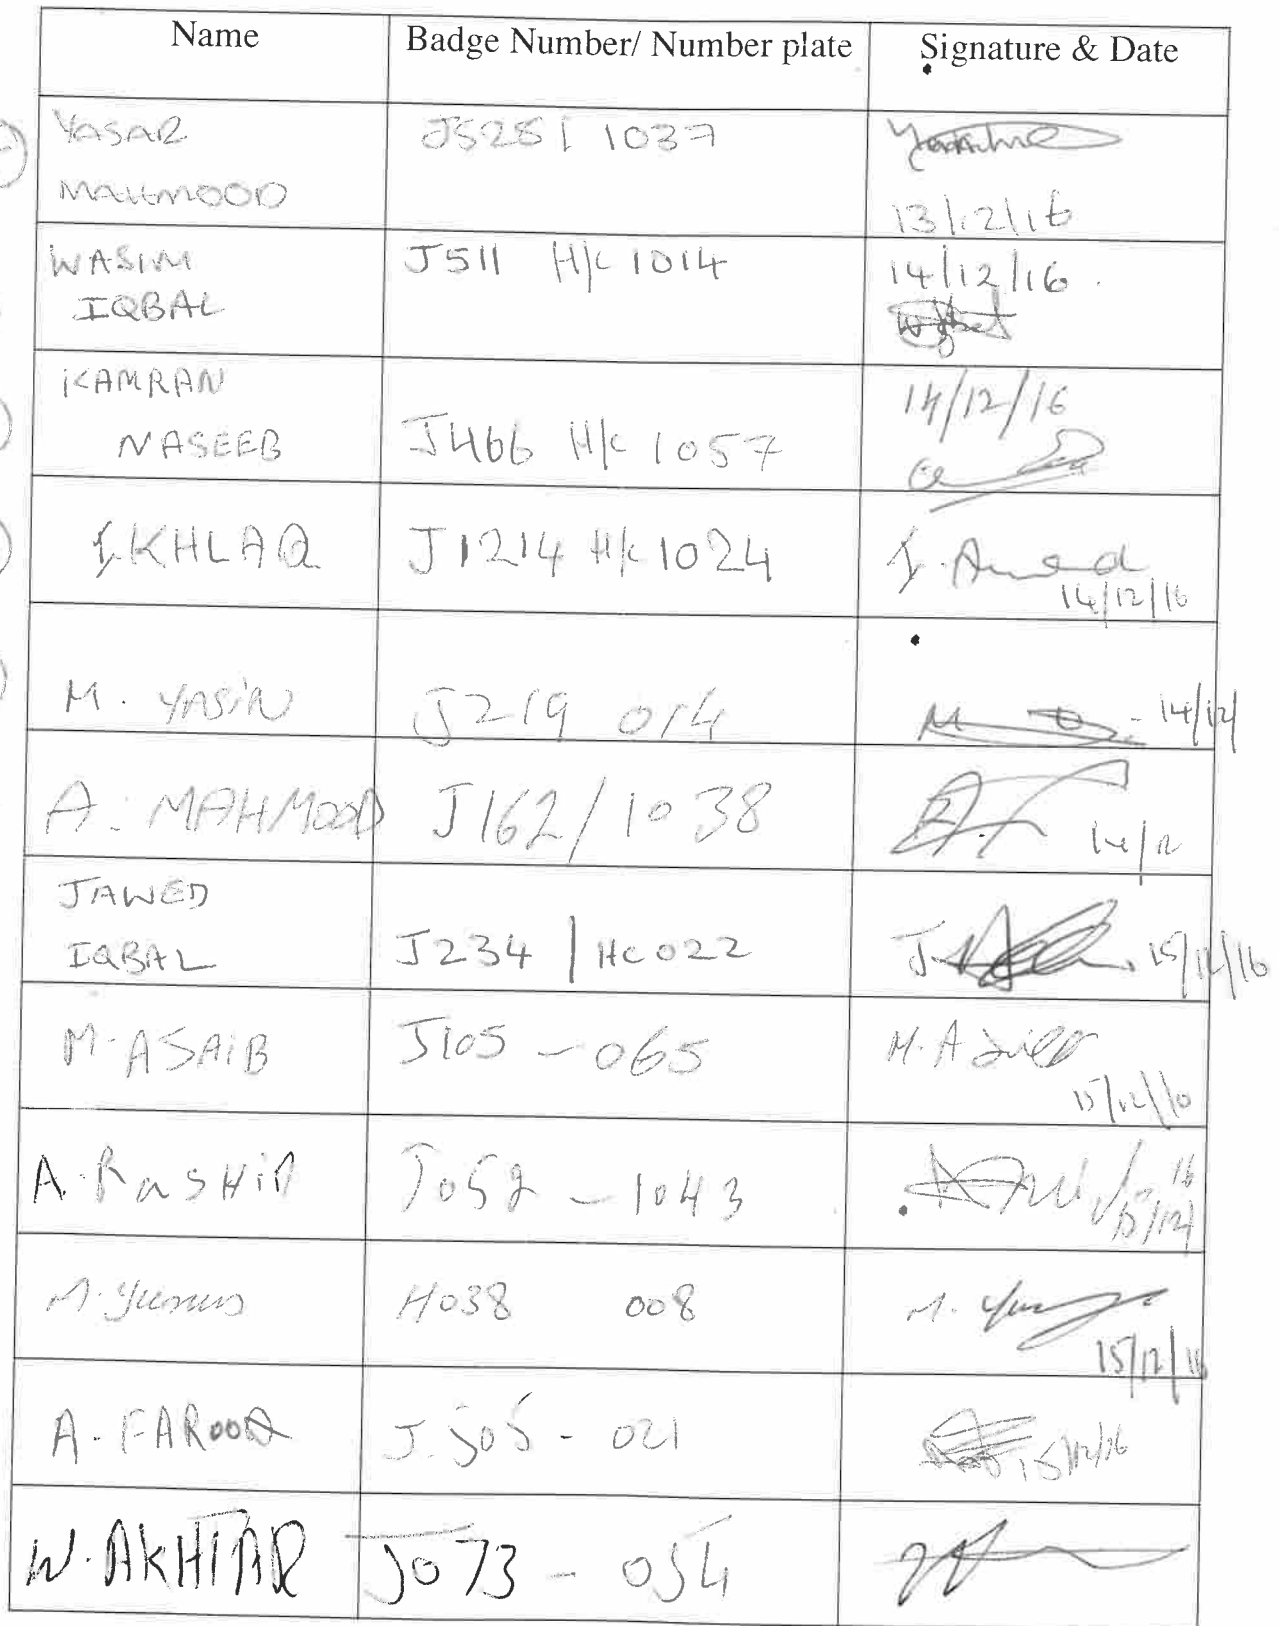 Name Badge Number/ Number plate Signature & Date
YASAR J528 | 1037
MAHMOOD
13/12/16
WASIM J511 H/C 1014 14/12/16.
IQBAL
KAMRAN 14/12/16
NASEEB J466 H/C 1057
I.KHLAQ J1214 H/C 1024
14/12/16
M. YASiN J219 014 14/12/
A. MAHMOOD J162/1038 14/12
JAWED
IQBAL J234 | HC022 15/12/16
M.ASAiB J105 - 065
A.RaSHiD J052 - 1043 15/12/16
M.Yunus H038 008 M. Yunus
15/12/16
A.FAROOQ J.505 - 021 15/12/16
W.AKHTAR J073 - 054